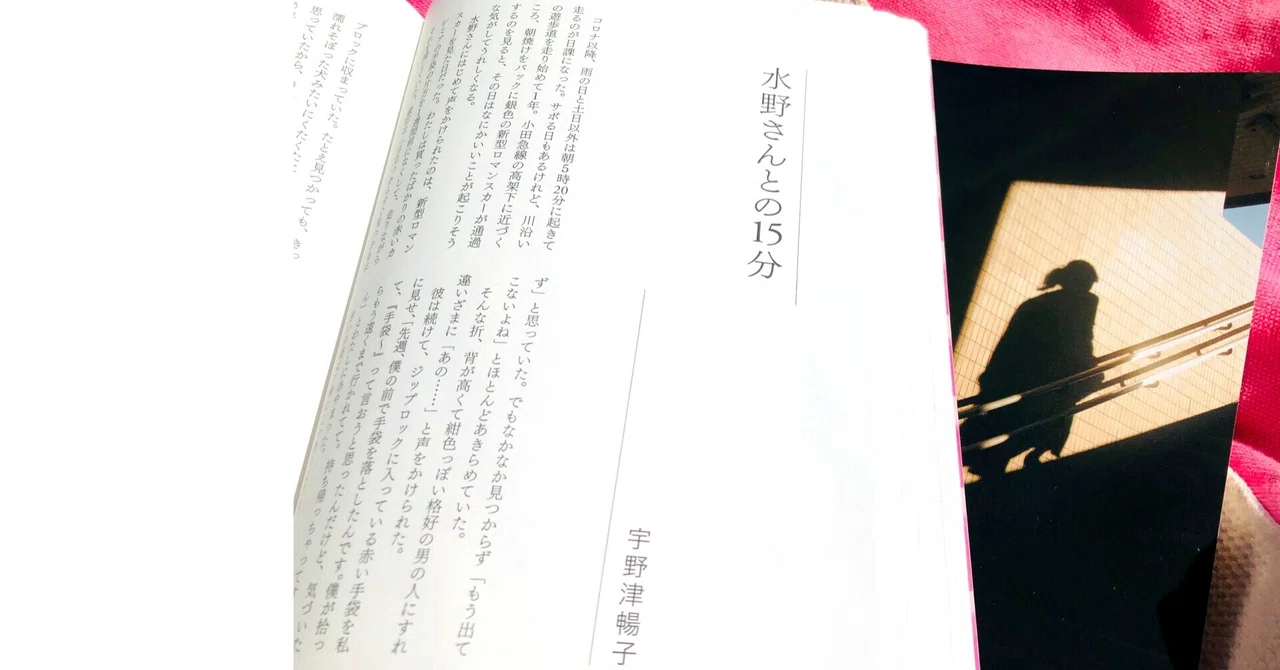 水野さんとの15分
宇野津暢子
コロナ以降、雨の日と土日以外は朝5時20分に起きて
走るのが日課になった。サボる日もあるけれど、川沿い
の遊歩道を走り始めて1年。小田急線の高架下に近づく
ころ、朝焼けをバックに銀色の新型ロマンスカーが通過
するのを見ると、その日はなにかいいことが起こりそう
な気がしてうれしくなる。
水野さんにはじめて声をかけられたのは、新型ロマン
スカーを見た日だった。わたしは買ったばかりの赤いカ
ず」と思っていた。でもなかなか見つからず「もう出て
こないよね」とほとんどあきらめていた。
そんな折、背が高くて紺色っぽい格好の男の人にすれ
違いざまに「あの……」と声をかけられた。
彼は続けて、ジップロックに入っている赤い手袋を私
に見せ、「先週、僕の前で手袋を落としたんです。僕が拾っ
て、『手袋〜』って言おうと思ったんだけど、気づいた
らもう遠くまで行かれてて。持ち帰っちゃって
ブロックに収まっていた。たとえ見つかっても、きっ
濡れそぼった犬みたいにくたくた
思っていたから、